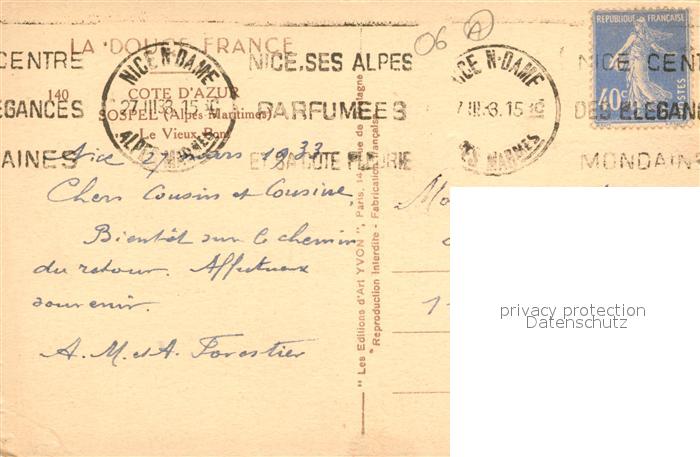 LA DOUCE FRANCE
140
COTE D'AZUR
SOSPEL (Alpes-Maritimes)
Le Vieux Pont
06 A
NICE N-DAME
27 III 33 15
ALPES MARMES
CENTRE
EGANCES
AINES
NICE, SES ALPES
PARFUMÉES
ET SA COTE FLEURIE
ICE N-DAME
7 III-3.15
ES MARMES
NICE CENT
DES ELEGANCE
MONDAIN
REPUBLIQUE FRANÇAISE
40c
POSTES
Nice 27 mars 1933
Chers Cousin et Cousine,
Bientôt sur le chemin
du retour. Affectueux
souvenir.
A. M. et A. Forestier
" Les Editions d'Art YVON ", Paris, 14, Rue de Bretagne
Reproduction Interdite - Fabrication Française
privacy protection
Datenschutz